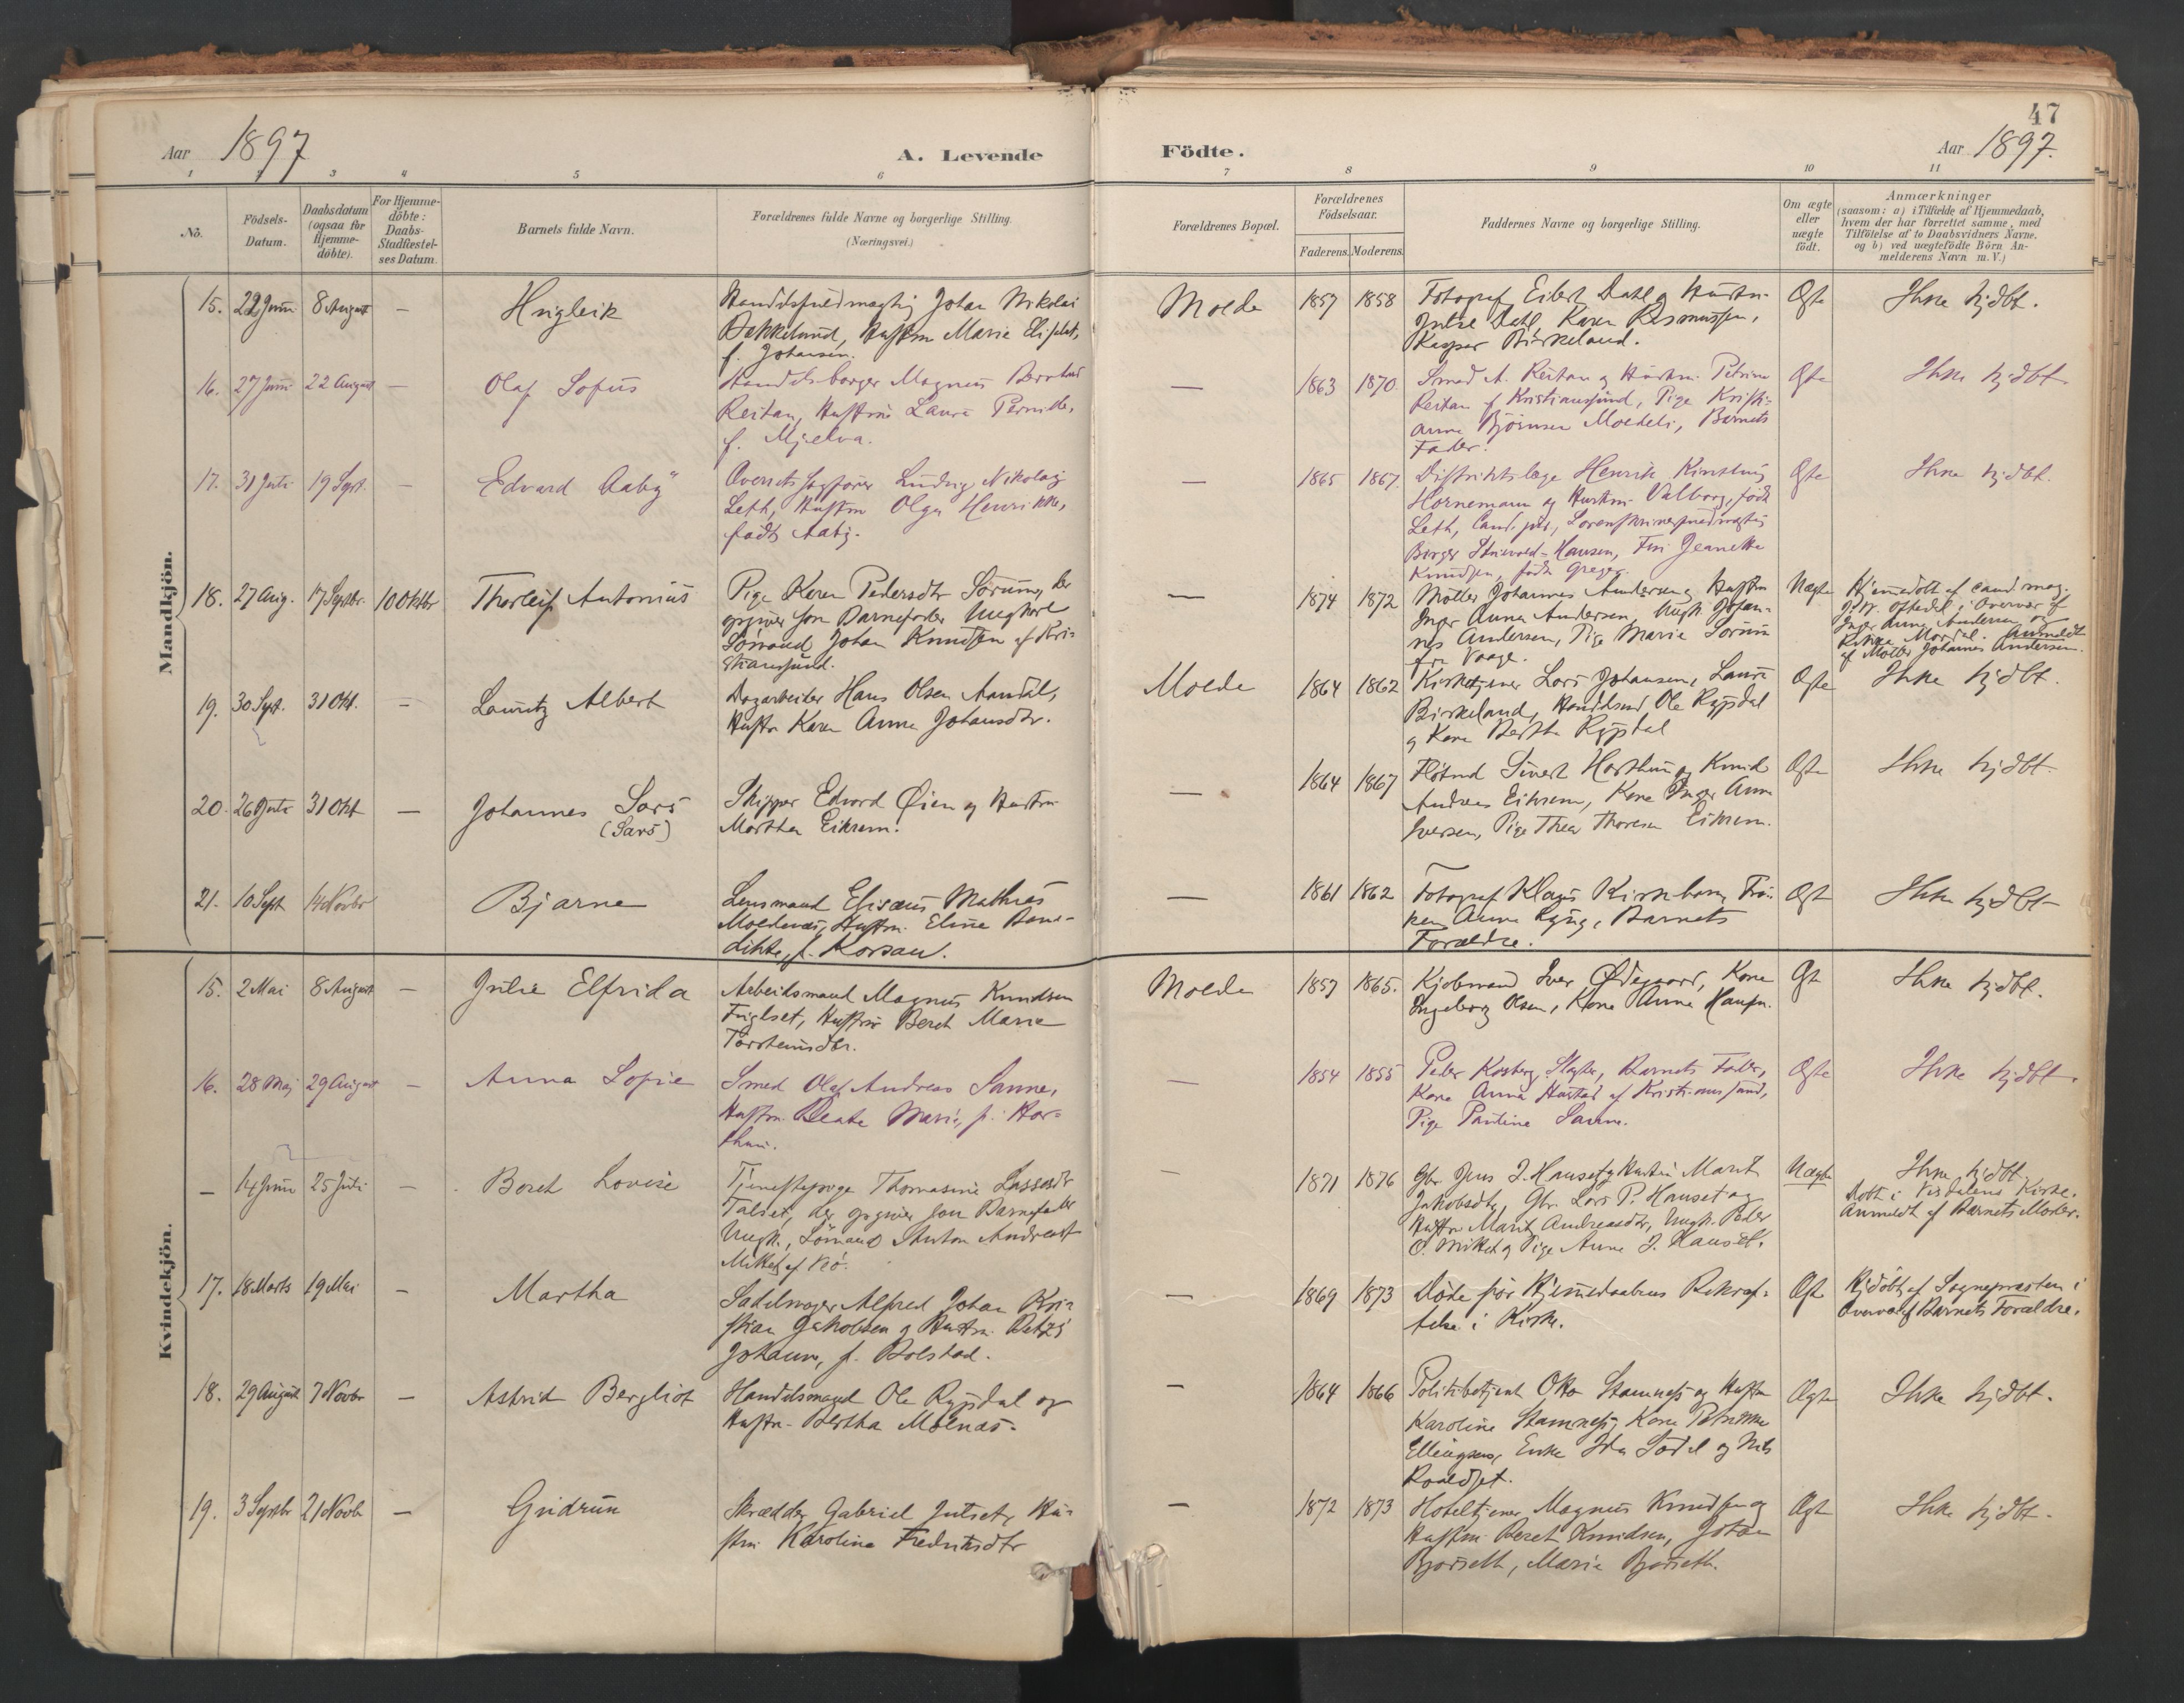 47
Aar 1897
A. Levende
Födte.
Aar 1897.
1 2 3 4 5 6 7 8 9 10 11
Nö.
Födsels-
Datum.
Daabsdatum
(ogsaa for
Hjemme-
döbte).
For Hjemme-
döbte:
Daabs-
Stadfæstel-
ses Datum.
Barnets fulde Navn.
Forældrenes fulde Navne og borgerlige Stilling.
(Næringsvei.)
Forældrenes Bopæl.
Forældrenes
Födselsaar.
Faderens. Moderens.
Faddernes Navne og borgerlige Stilling.
Om ægte
eller
uægte
födt.
Anmærkninger
(saasom: a) i Tilfælde af Hjemmedaab,
hvem der har forrettet samme, med
Tilföielse af to Daabsvidners Navne.
og b) ved uægtefödte Börn An-
melderens Navn m. V.)
Mandkjön.
15. 22 Juni 8 August — Hugleik
Handelsfuldmægtig Johan Nikolai
Bekkelund, Hustru Marie Elisabet,
f. Johansen.
Molde 1857 1858
Fotograf Eilert Dahl og Hustru
Julie Dahl, Karen Rasmussen,
Kasper Birkeland.
Ægte Ikke hjdbt.
16. 27 Juni 22 August — Olaf Sofus
Handelsborger Magnus
Reitan, Hustru Laura Pernille,
f. Mjelva.
— 1863 1870.
Smed A. Reitan og Hustru Petrine
Reitan af Kristiansund, Pige Kristi-
anna Björnsen Moldeli, Barnets
Fader.
Ægte Ikke hjdbt.
17. 31 Juli 19 Sept. — Edvard Aaby
Overretssagförer Ludvig Nikolaj
Leth, Hustru Olga Henrikke,
födt Aaby.
— 1865 1867.
Distriktslæge Henrik
Hornemann og Hustru Valborg, födt
Leth, Cand. jur., Sorenskriverfuldmægtig
Borger Hansen, Fru Jeanette
Knudsen, födt
Ægte Ikke hjdbt.
18. 27 Aug. 17 Septbr. 10 Oktbr Thorleif Antonius
Pige Karen Pedersdtr Sörum, der
opgiver som Barnefader Ungkarl
Sömand Johan Knudsen af Kri-
stiansund.
— 1874 1872
Möller Johannes Andersen og Hustru
Inger Anna Andersen, Ungk. Johan-
nes Andersen, Pige Marie Sörum
fra Vaage.
Uægte
Hjemmedöbt af cand. mag.
Oftedal i Overvær af
Inger Anna Andersen og
Mordal. Anmeldt
af Möller Johannes Andersen.
19. 30 Sept. 31 Okt. — Lauritz Albert
Dagarbeider Hans Olsen Aandal,
Hustru Karen Anna Johansdtr.
Molde 1864 1862
Kirketjener Lars Johansen, Laura
Birkeland, Handelsmd Ole Rypdal
og Kone Bertha Rypdal
Ægte Ikke hjdbt.
20. 26 Juli 31 Okt — Johannes Sars
(Sars)
Skipper Edvard Øien og Hustru
Marthe Eikrem.
— 1864 1867
Sivert Harthun og Knud
Andreas Eikrem, Kone Inger Anna
Iversen, Pige Thea Thoresen Eikrem.
Ægte Ikke hjdbt.
21. 10 Sept 14 Novbr Bjarne
Lensmand Elisæus Mathias
Moldenæs, Hustru Eline Bene-
dikte, f. Korsan.
— 1861 1862
Fotograf Klaus Kirkhorn, Frö-
ken Anna Ryng, Barnets
Forældre.
Ægt Ikke hjdbt
Kvindekjön.
15. 2 Mai 8 August — Julie Elfrida
Arbeidsmand Magnus Knudsen
Fuglset, Hustru Beret Marie
Torsteinsdtr.
Molde 1857 1865.
Kjöbmand Iver Ødegaard, Kone
Ingeborg Olsen, Kone Anna Hansen.
Ægte Ikke hjdbt.
16. 28 Maj 29 August — Anna Sofie
Smed Olaf Andreas Sanne,
Hustru Beate Marie, f. Har-
thun.
— 1854 1855
Peder Kosberg, Slagter, Barnets Fader,
Kone Anna Hustad af Kristiansund,
Pige Pauline Sanne.
Ægte Ikke hjdbt.
— 14 Juni 25 Juli — Beret Lovise
Tjenestepige Thomasine Lassesdtr
Talset, der opgiver som Barnefader
Ungk., Sömand Anton Andreas
Mittet af Rö.
— 1871 1876
Gbr. Jens J. Hauset og Hustru Marit
Jakobsdtr, Gbr. Lars P. Hauset og
Hustru Marit Andreasdtr, Ungk. Peder
O. Mittet og Pige Anne J. Hauset.
Uægte
Ikke hjdbt.
Döbt i Visdalens Kirke.
Anmeldt af Barnets Moder.
17. 18 Marts 19 Mai — Martha
Sadelmager Alfred Johan Kri-
stian Jakobsen og Hustru Betzy
Johanne, f. Bolstad.
— 1869 1873
Döde för Hjemmedaabens Bekræf-
telse i Kirke.
Ægte
Hjdöbt af Sognepresten i
Overvær af Barnets Forældre.
18. 29 August 7 Novbr — Astrid Bergliot
Handelsmand Ole Rypdal og
Hustru Bertha Molnæs.
— 1864 1866
Politibetjent Otto Stamnes og Hustru
Karoline Stamnes, Kone Petrikke
Ellingsen, Enke Ida Södel og Nils
Roaldset.
Ægte Ikke hjdbt.
19. 3 Septbr 21 Novbr — Gudrun
Skrædder Gabriel Julset, Hu-
stru Karoline Fredriksdtr
— 1872 1873
Hoteltjener Magnus Knudsen og
Hustru Beret Knudsen, Johan
Bjørseth, Marie Bjørseth.
Ægte Ikke hjdbt.